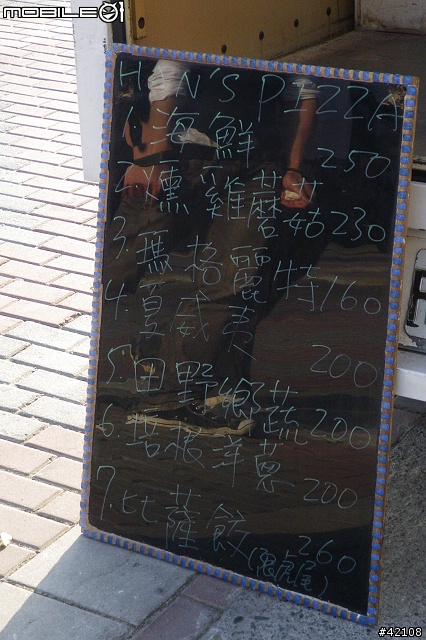 MOBILE01
HAN'S PIZZA
1. 海鮮 250
2. 燻雞蘑菇 230
3. 瑪格麗特 160
4. 夏威夷 200
5. 田野鄉蔬 200
6. 培根洋蔥 200
7. 比薩餃 260
#42108